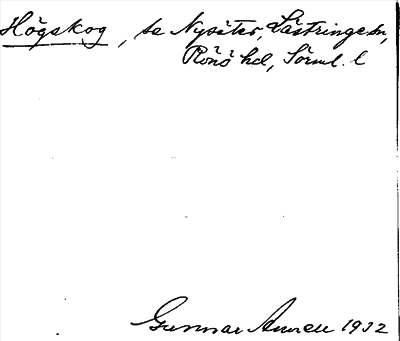 Högskog, se Nysäter, Lästringe sn,
Rönö hd, Sörml. l
Gunnar 1932